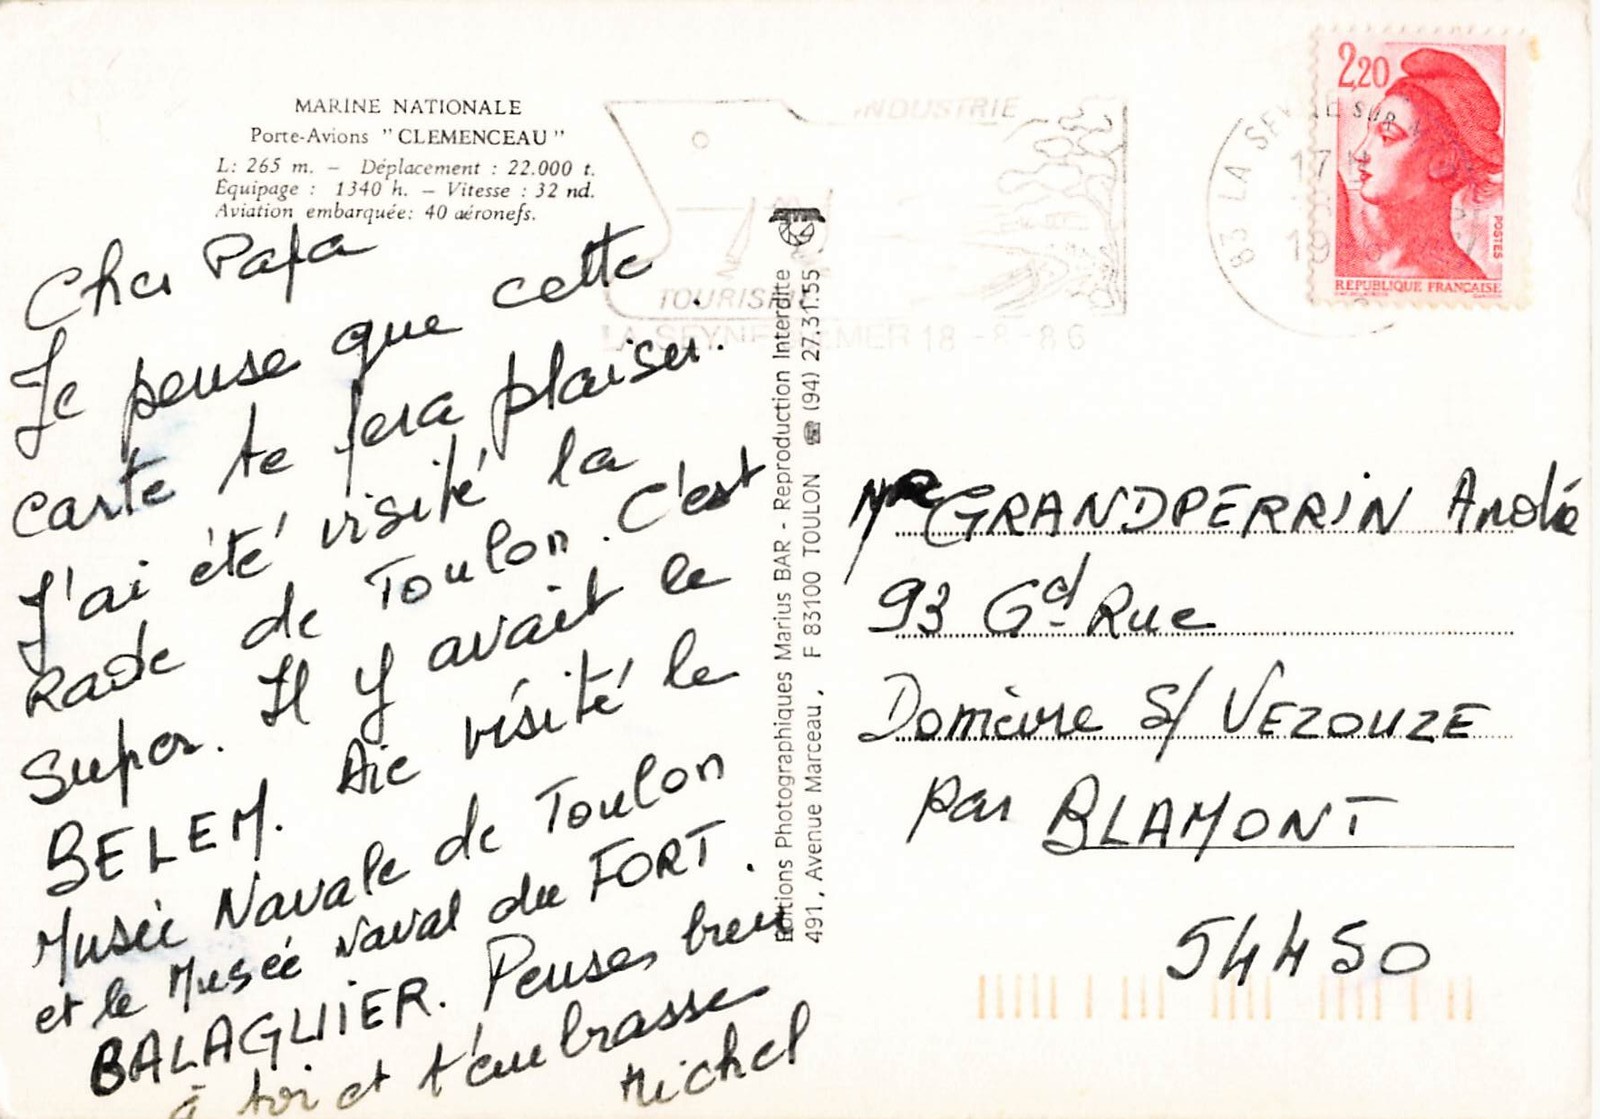 MARINE NATIONALE
Porte-Avions "CLEMENCEAU"
L: 265 m. – Déplacement : 22.000 t.
Équipage : 1340 h. – Vitesse : 32 nd.
Aviation embarquée: 40 aéronefs.
Cher Papa
Je pense que cette
carte te fera plaisir.
J'ai été visité la
Rade de Toulon. C'est
Super. Il y avait le
BELEM. Aie visité le
Musée Navale de Toulon
et le Musée Naval du FORT.
BALAGUIER. Penses bien
à toi et t'embrasse
Michel
Editions Photographiques Marius BAR - Reproduction Interdite
491, Avenue Marceau, F 83100 TOULON ☎ (94) 27.31.55
INDUSTRIE
TOURISME
LA SEYNE MER 18 -8-86
83 LA SEYNE SUR
17 H
19
2,20
POSTES
REPUBLIQUE FRANÇAISE
Mr GRANDPERRIN André
93 Gd Rue
Domèvre S/ VEZOUZE
par BLAMONT
54450